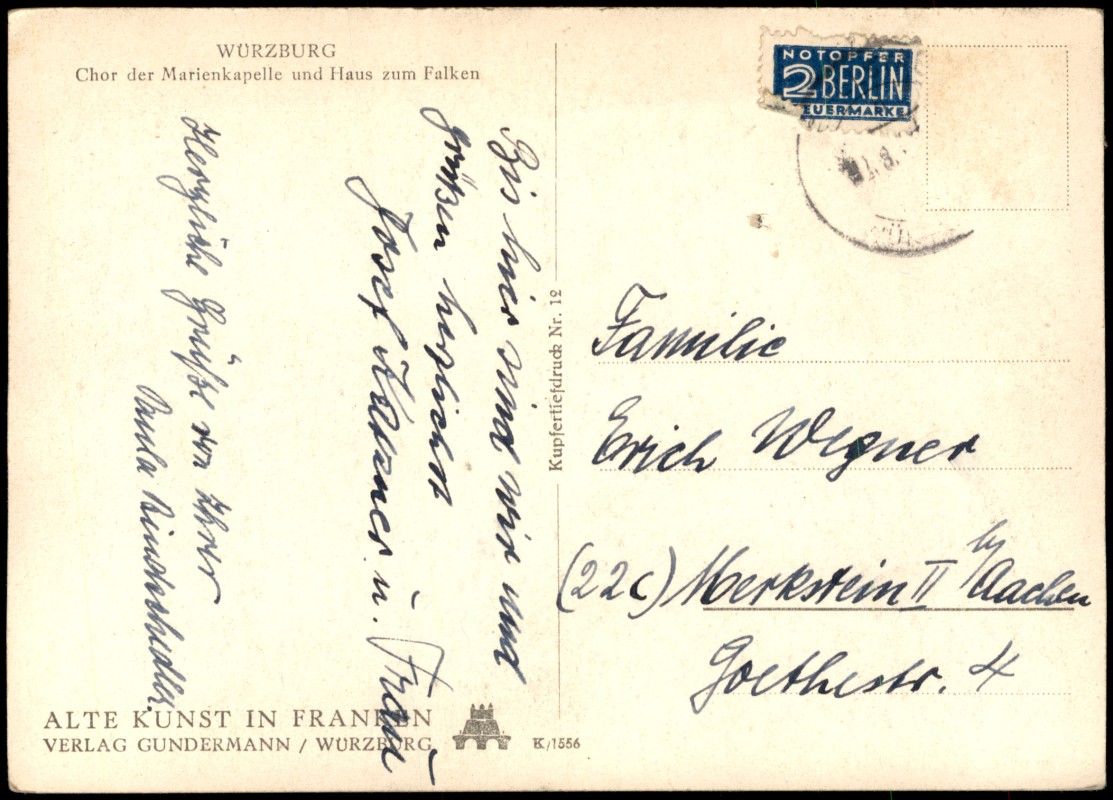 WÜRZBURG
Chor der Marienkapelle und Haus zum Falken
Bis hier sind wir und
grüßen herzlichst
Josef u. Frau
Herzliche Grüße von Ihrer
Paula
ALTE KUNST IN FRANKEN
VERLAG GUNDERMANN / WÜRZBURG
K/1556
Kupfertiefdruck Nr. 12
NOTOPFER
2 BERLIN
EUERMARKE
Familie
Erich Wegner
(22c) Merkstein II by Aachen
Goethestr. 4